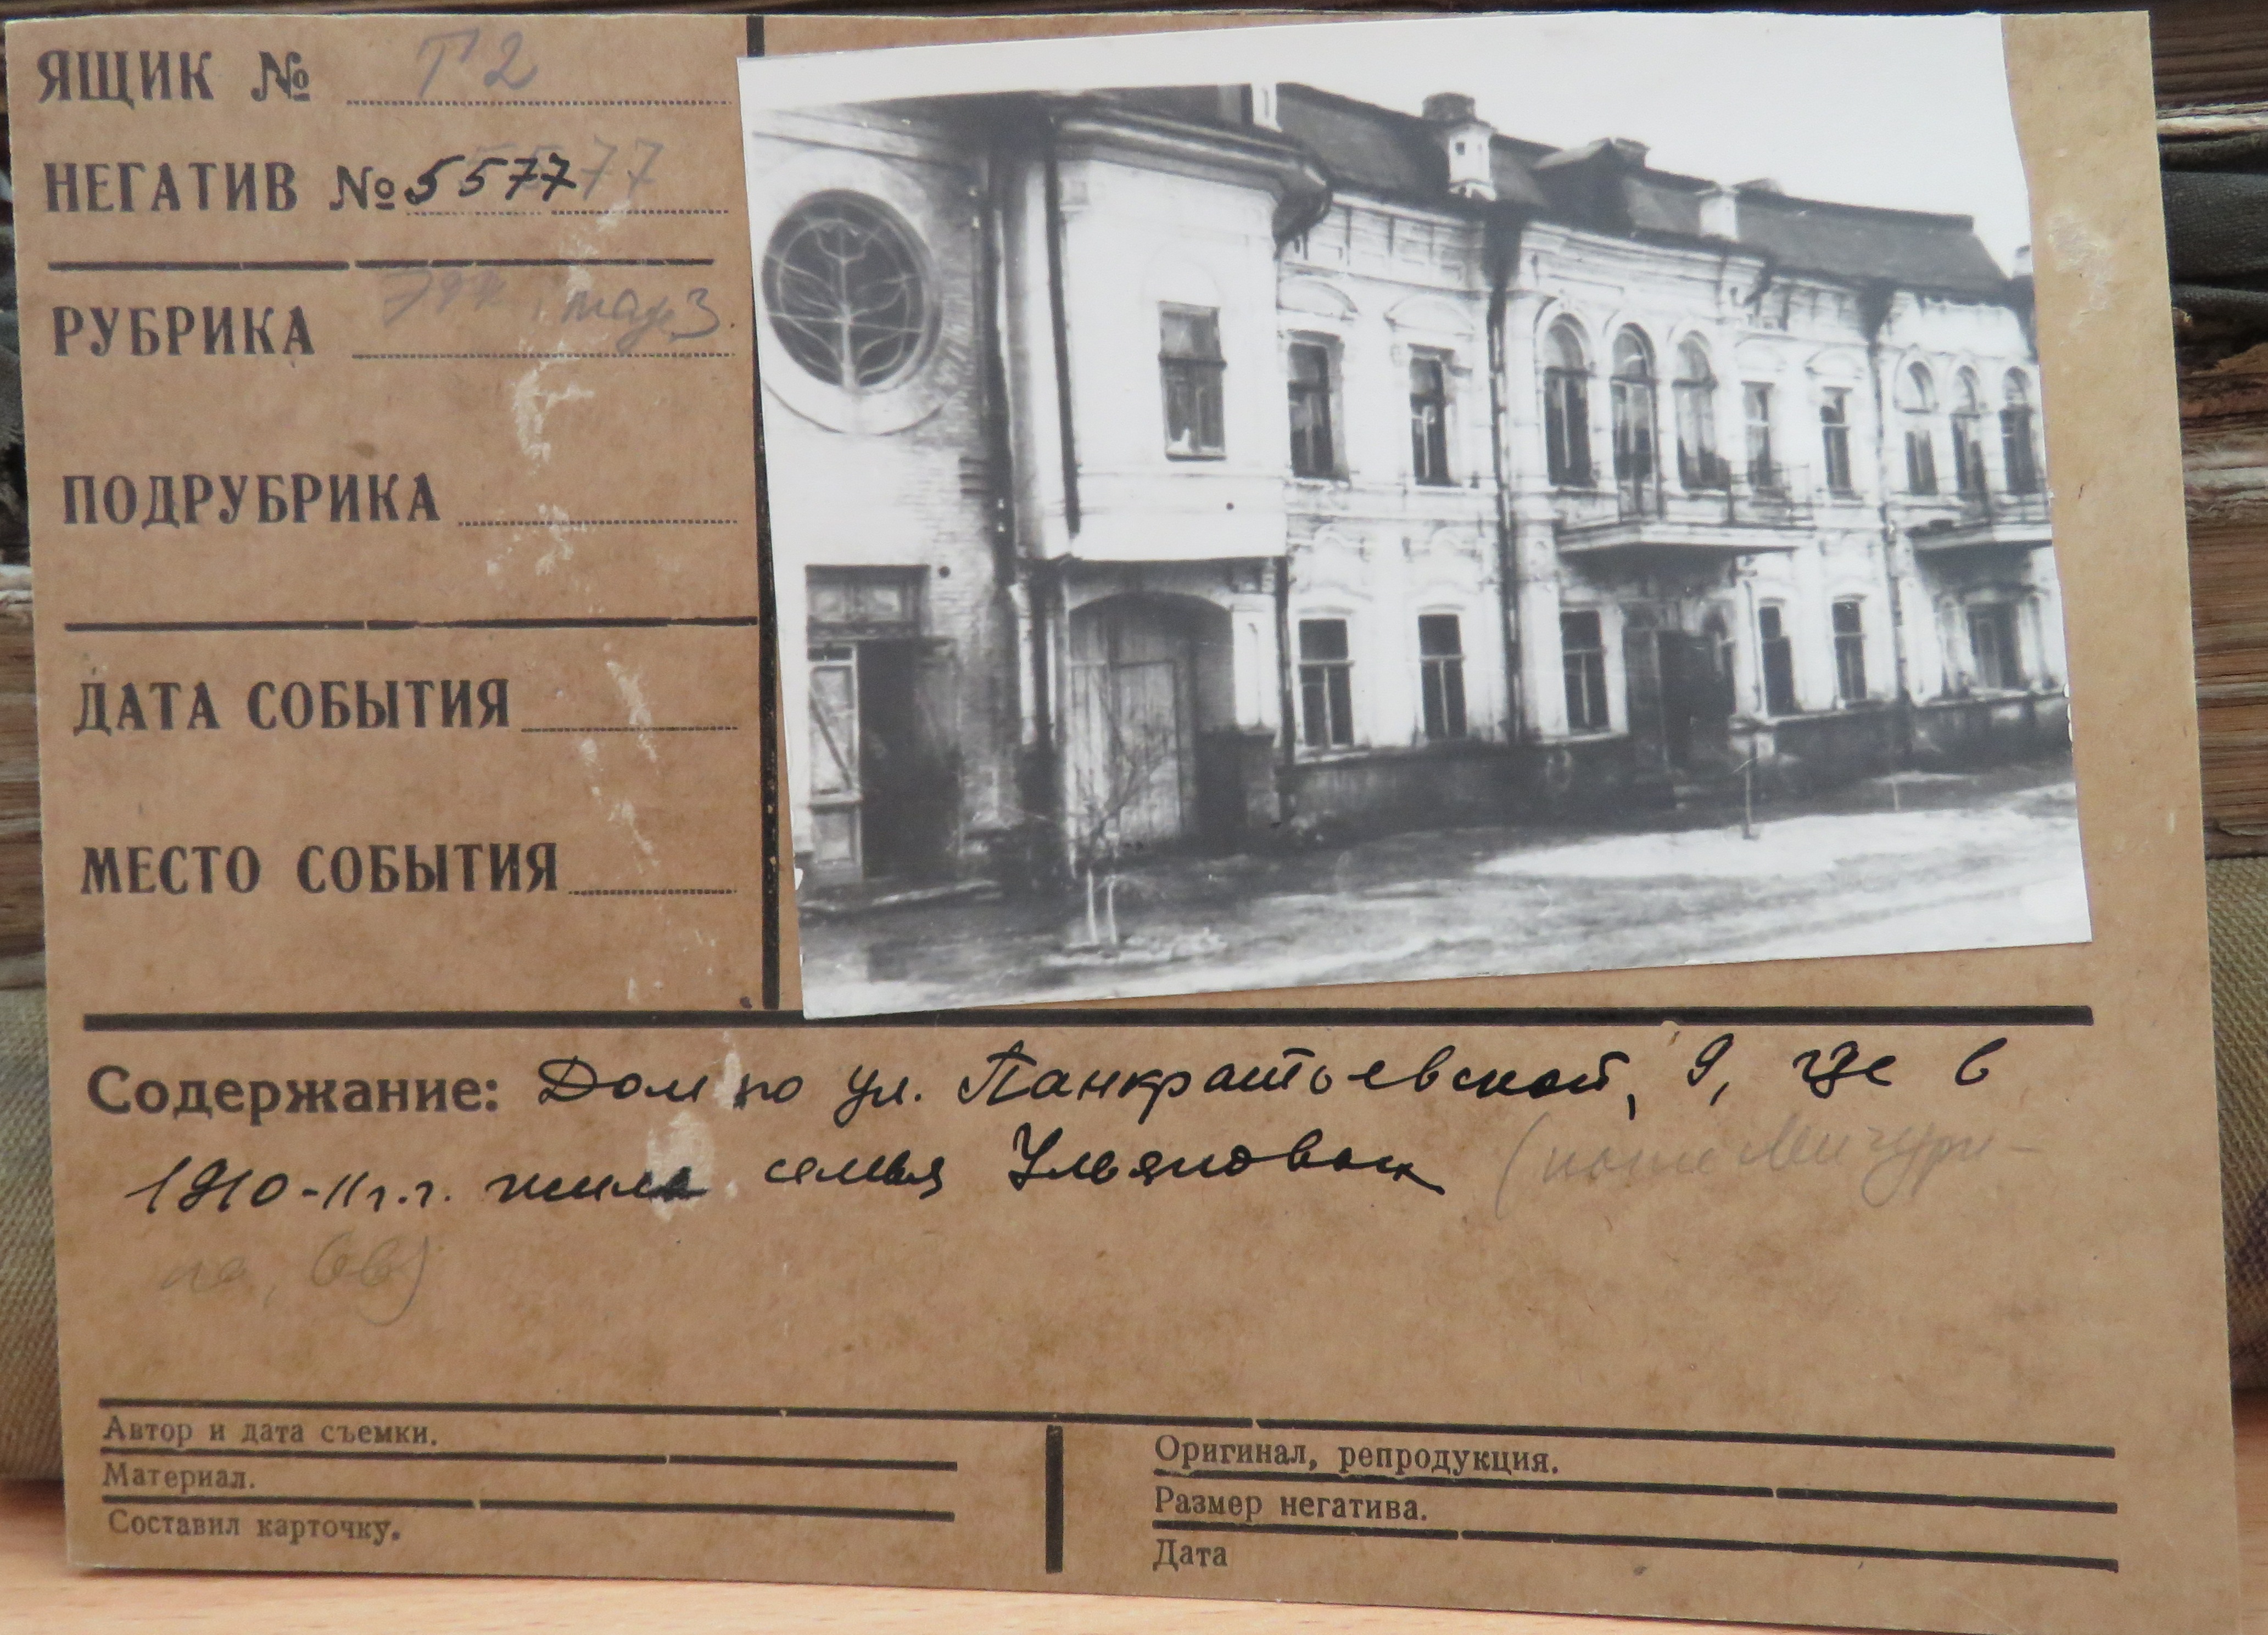 ЯЩИК № Т 2
НЕГАТИВ № 5577 77
РУБРИКА
ПОДРУБРИКА
ДАТА СОБЫТИЯ
МЕСТО СОБЫТИЯ
Содержание: Дом по ул. Панкратьевской, 9, где в
1910-11 г.г. жила семья Ульяновых (ныне Мичури-
на,
Автор и дата съемки.
Материал.
Составил карточку.
Оригинал, репродукция.
Размер негатива.
Дата